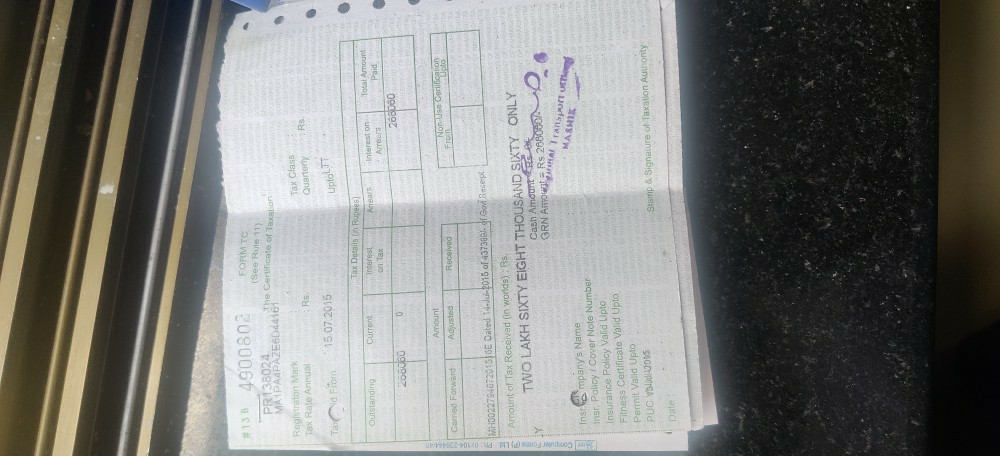 #13 B 4900802 FORM TC
(See Rule 11)
The Certificate of Taxation
PR138024
Registration Mark
Tax Rate Annual : Rs. Tax Class
Quarterly Rs.
Tax From : 15.07.2015 Upto LTT
Tax Details (In Rupees)
Outstanding Current Interest on Tax Arrears Interest on Arrears Total Amount Paid
268060 0 268060
Amount Non-Use Certification
Carried Forward Adjusted Received From Upto
Dated 2015 of Govt Receipt
Amount of Tax Received (in worlds) : Rs.
TWO LAKH SIXTY EIGHT THOUSAND SIXTY ONLY
Cash Amount
Y GRN Amount = Rs.268060/-
Transport
NASHIK
Company's Name
Insr. Policy / Cover Note Number
Insurance Policy Valid Upto
Fitness Certificate Valid Upto
Permit Valid Upto
PUC
Date : Stamp & Signature of Taxation Authority
Computer Forms (P) Ltd.